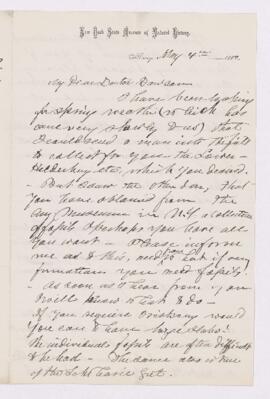 New York State Museum of Natural History.
Albany, May 4th 1880.
My Dear Doctor Dawson
I have been looking
for spring weather (which has
come very slowly) that
I could send a man into the field
to collect for you the Lower
Helderberg etc. which you desired.
But I learn the other day, that
you have obtained from the
Am Museum in N.Y. a collection
of fossils & perhaps you have all
you want — Please inform
me as to this, and
formations you need fossils.
As soon as I hear from you
I will know what to do —
If you require
you can have large slabs.
The individual fossils are often difficult
to be had — The same also is true
of the